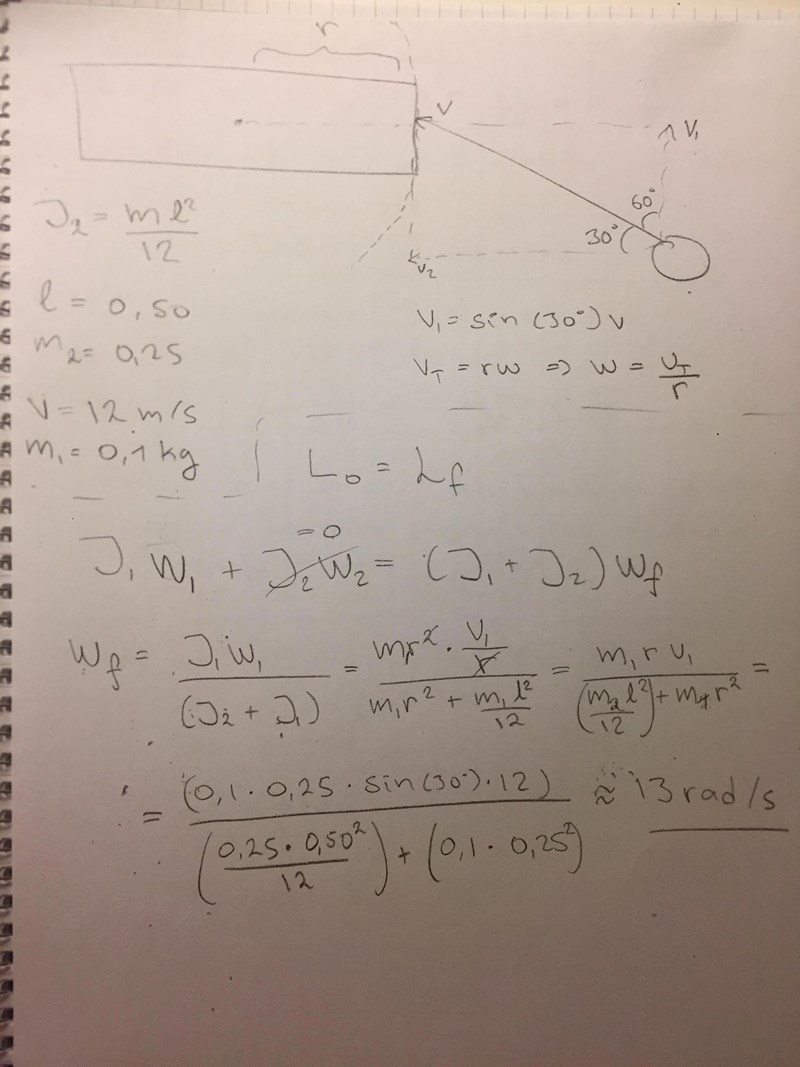 r
V
V₁
60°
30°
V₂
J₂ = m l² / 12
l = 0,50
m₂ = 0,25
V = 12 m/s
m₁ = 0,1 kg
V₁ = sin (30°) v
V_T = rw ⇒ w = V_T / r
L₀ = L_f
= 0
J₁ W₁ + J₂ W₂ = (J₁ + J₂) W_f
W_f = J₁ W₁ / (J₂ + J₁) = m r² · V₁/r / (m₁ r² + m₁ l²/12) = m₁ r V₁ / ((m₂ l²/12) + m₁ r²) =
= (0,1 · 0,25 · sin(30°) · 12) / ((0,25 · 0,50²/12) + (0,1 · 0,25²)) ≈ 13 rad/s